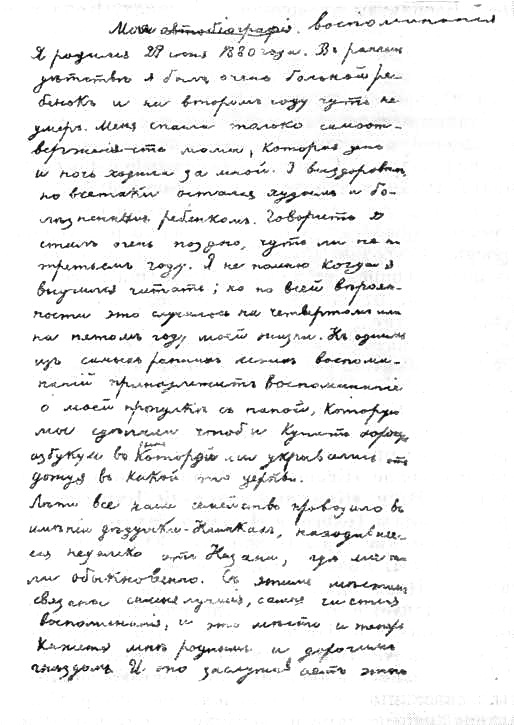 Мои автобіографія. воспоминанія
Я родился 29 іюня 1880 года. В раннем
дѣтствѣ я былъ очень больной ре-
бенокъ и на второмъ году чуть не
умеръ. Меня спасла только самоот-
верженность мамы, которая день
и ночь ходила за мной. Я выздоровѣлъ,
но все таки остался худымъ и бо-
лѣзненнымъ ребенкомъ. Говорить я
сталъ очень поздно, чуть ли не на
третьемъ году. Я не помню когда я
выучился читать; но по всей вѣроят-
ности это случилось на четвертомъ или
на пятомъ году моей жизни. Къ однимъ
изъ самыхъ раннихъ моихъ воспоми-
наній принадлежитъ воспоминаніе
о моей прогулкѣ съ папой, которую
мы сдѣлали чтобъ и купить
азбуку и во время которой мы укрывались отъ
дождя въ какой то церкви.
Лѣто все наше семейство проводило въ
имѣніи дѣдушки - находившее-
ся недалеко отъ Казани, гдѣ мы жи-
ли обыкновенно. Съ этимъ мѣстомъ
связаны самыя лучшія, самыя чистыя
воспоминанія, и это мѣсто и теперь
кажется мнѣ роднымъ и дорогимъ
гнѣздомъ. И оно заслуживаетъ этого